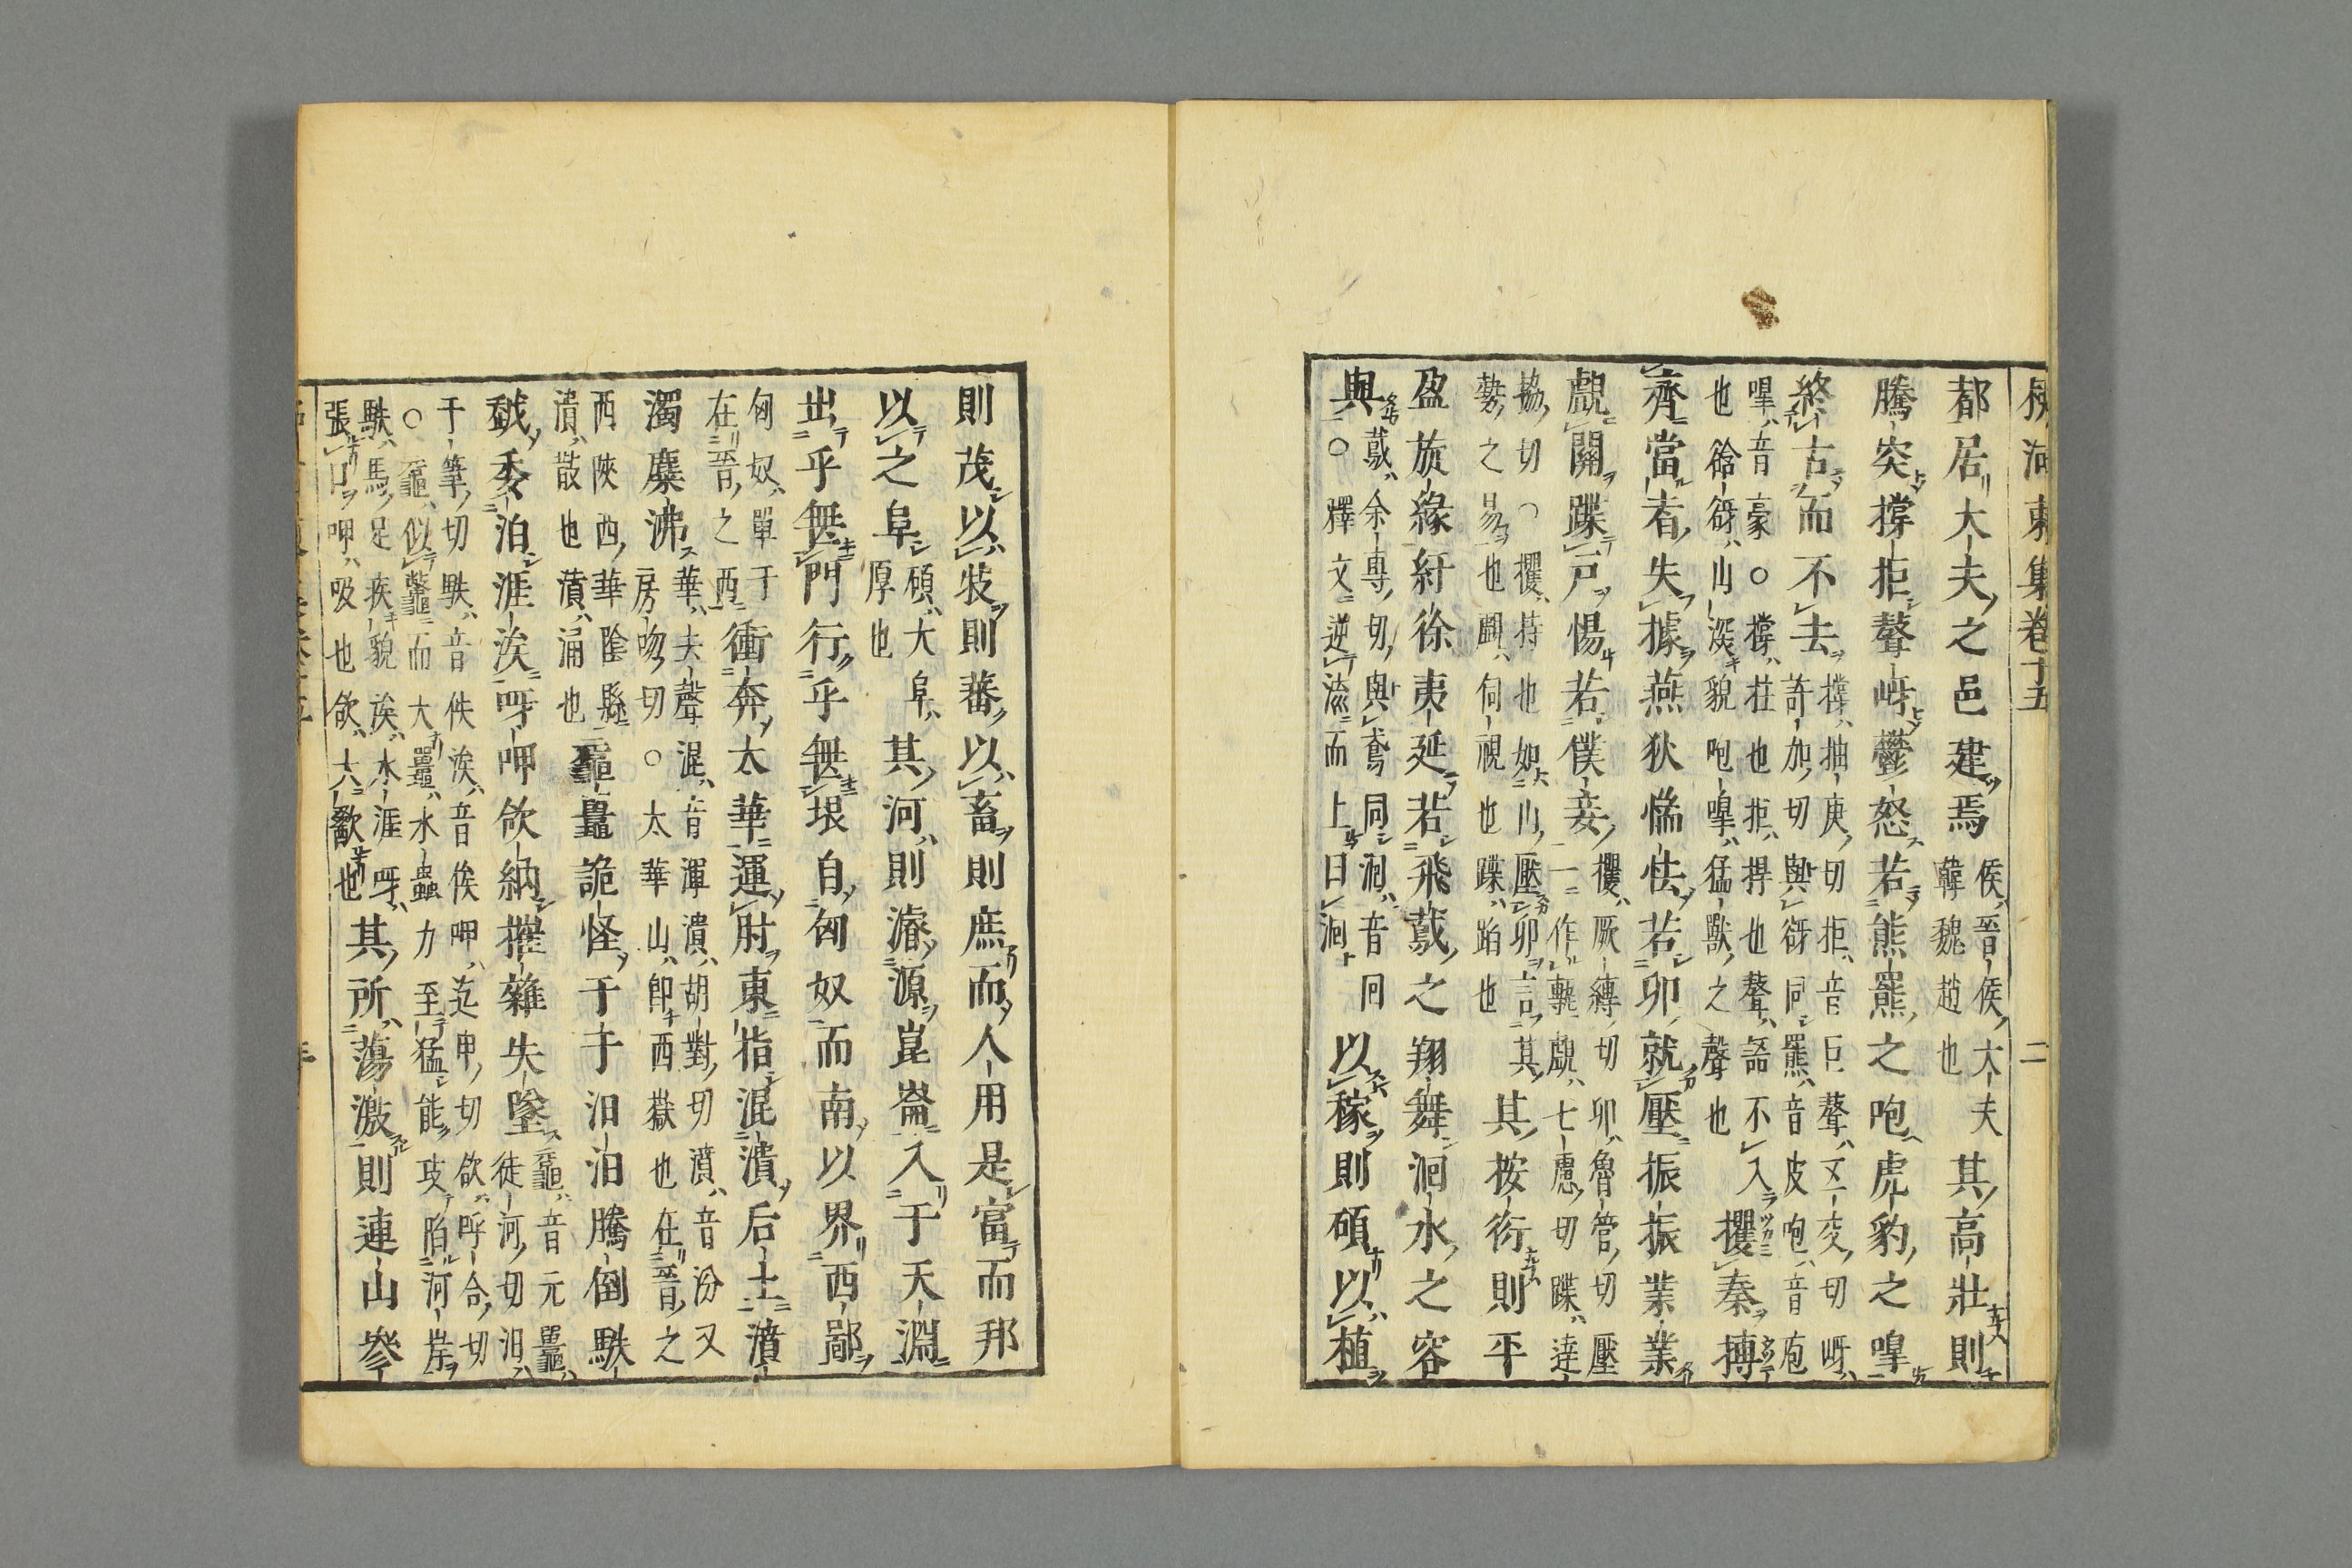 河東集卷十五
二
都居大夫之邑建焉侯晉侯大夫韓魏趙也其高壯則
騰突撐拒聱岈鬱怒若熊羆之咆虎豹之嘷
終古而不去撐抽庚切拒音巨聱叉交切岈許加切與谺同羆音皮咆音庖嘷音豪○撐拄也拒捍也聱語不入也谽谺山深貌咆嘷猛獸之聲也攫秦搏
齊當者失據燕狄惴怯若卵就壓振振業業
覷關蹀戶惕若僕妾攫厥縳切卵魯管切壓一作軋覷七慮切蹀達協切○攫持也如山壓卵言其勢之易也覷伺視也蹀蹈也其按衍則平
盈旋緣紆徐夷延若飛鳶之翔舞洄水之容
與鳶余專切與鳶同洄音回○釋文逆流而上曰洄以稼則碩以植
則茂以牧則蕃以畜則庶而人用是富而邦
以之阜碩大阜厚也其河則濬源崑崙入于天淵
出乎無門行乎無垠自匈奴而南以界西鄙
匈奴單于在晉之西衝奔太華運肘東指混潰后土濆
濁糜沸華夫聲混音渾潰胡對切濆音汾又房吻切○太華山卽西嶽也在晉之西陝西華陰縣潰散也濆涌也黿鼉詭怪于于汩汩騰倒駃
越委泊涯涘呀呷欱納摧雜失墜黿音元鼉徒河切汩于筆切駃音佚涘音俟呷迄甲切欱呼合切○黿似鼈而大鼉水蟲力至猛能攻陷河岸駃馬足疾貌涘水涯呀張口呷吸也欱大歠也其所蕩激則連山參